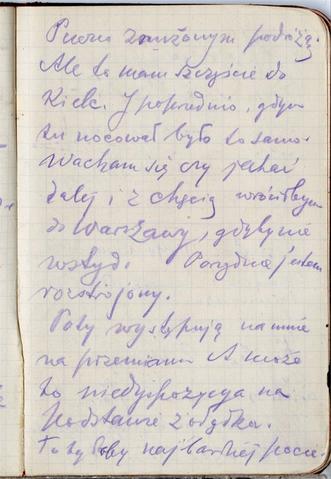 zmużonym podróżą.
Ale to mam szczęście do
Kielc. I poprzednio, gdym
tu nocował było to samo.
Wacham się czy jechać
dalej i z chęcią wróciłbym
do Warszawy, gdyby nie
wstyd. jestem
rozstrojony.
Poty występują na mnie
na przemian. A może
to niedyspozycja na
podstawie żołądka.
To byłoby najbardziej pocie-